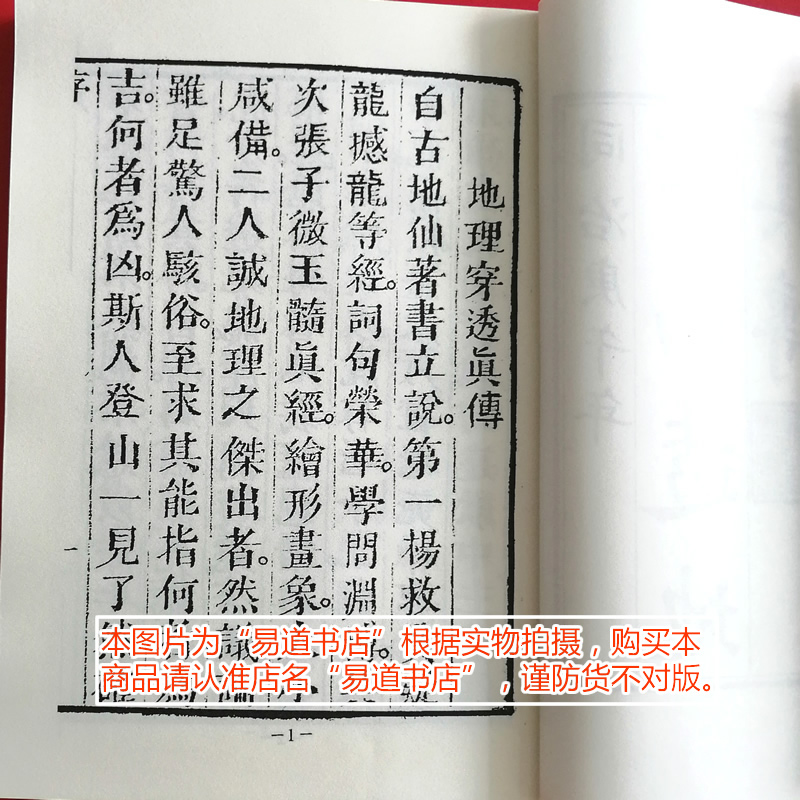 地理穿透眞傳
自古地仙著書立說。第一楊救
龍撼龍等經。詞句榮華。學問淵
次張子微玉髓眞經。繪形畫象。
咸備。二人誠地理之傑出者。然議論
雖足驚人駭俗。至求其能指何者爲
吉。何者爲凶。斯人登山一見了然
序
一
本图片为“易道书店”根据实物拍摄，购买本
商品请认准店名“易道书店”，谨防货不对版。
—1—